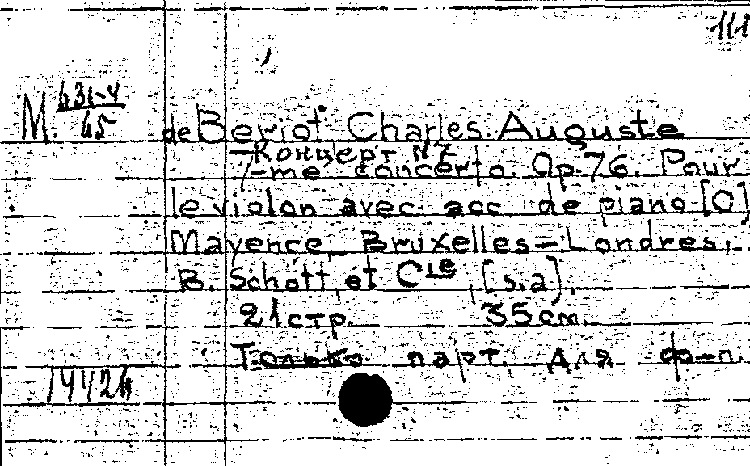 111
M. 631-4
65
de Beriot Charles Auguste
Концерт №7
7-me concerto. Op.76. Pour
le violon avec acc de piano [C]
Mayence, Bruxelles-Londres,
B. Schott et Cie, [s.a].
21 стр. 35 cm.
Только парт. для ф-п.